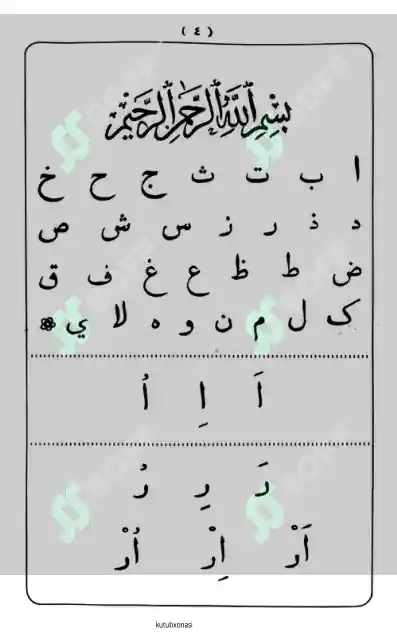 ( ٤ )
بِسْمِ اللَّهِ الرَّحْمَٰنِ الرَّحِيْمِ
ا ب ت ث ج ح خ
د ذ ر ز س ش ص
ض ط ظ ع غ ف ق
ک ل م ن و ه لا ي
اَ اِ اُ
رَ رِ رُ
اَرْ اِرْ اُرْ
kutubxonasi